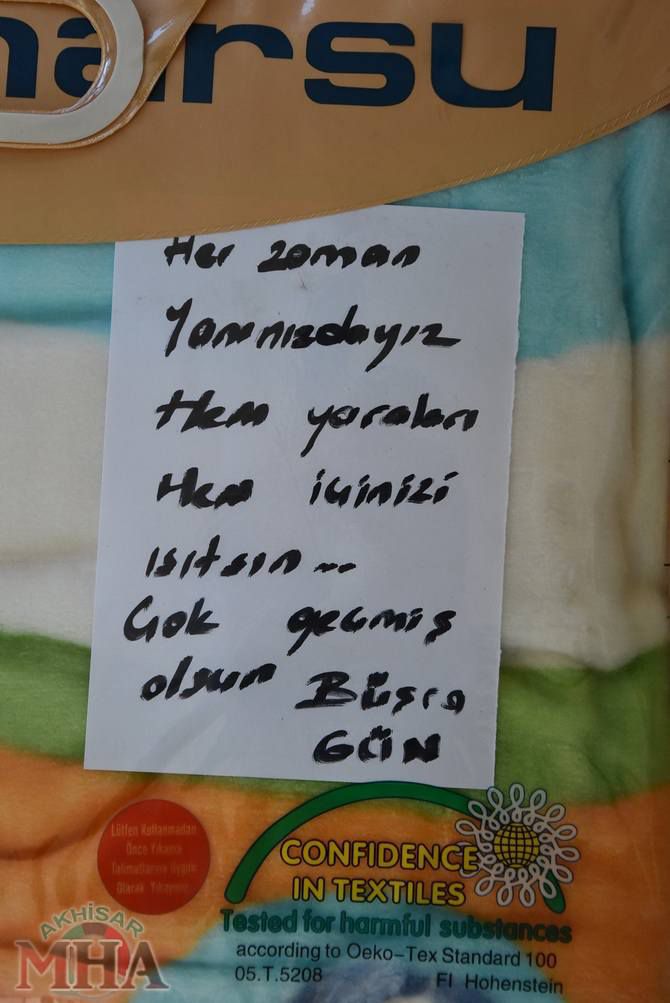 narsu
Her zaman
Yanınızdayız
Hem yaraları
Hem içinizi
ısıtsın...
Çok geçmiş
olsun Büşra
GÜN
Lütfen Kullanmadan
Önce Yıkama
Talimatlarına Uygun
Olarak Yıkayınız
CONFIDENCE
IN TEXTILES
Tested for harmful substances
according to Oeko-Tex Standard 100
05.T.5208 FI Hohenstein
AKHİSAR
MHA